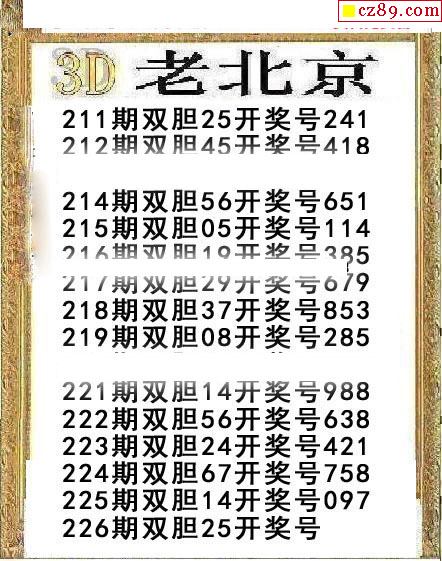 cz89.com
3D 老北京
211期双胆25开奖号241
212期双胆45开奖号418
214期双胆56开奖号651
215期双胆05开奖号114
216期双胆19开奖号385
217期双胆29开奖号679
218期双胆37开奖号853
219期双胆08开奖号285
221期双胆14开奖号988
222期双胆56开奖号638
223期双胆24开奖号421
224期双胆67开奖号758
225期双胆14开奖号097
226期双胆25开奖号